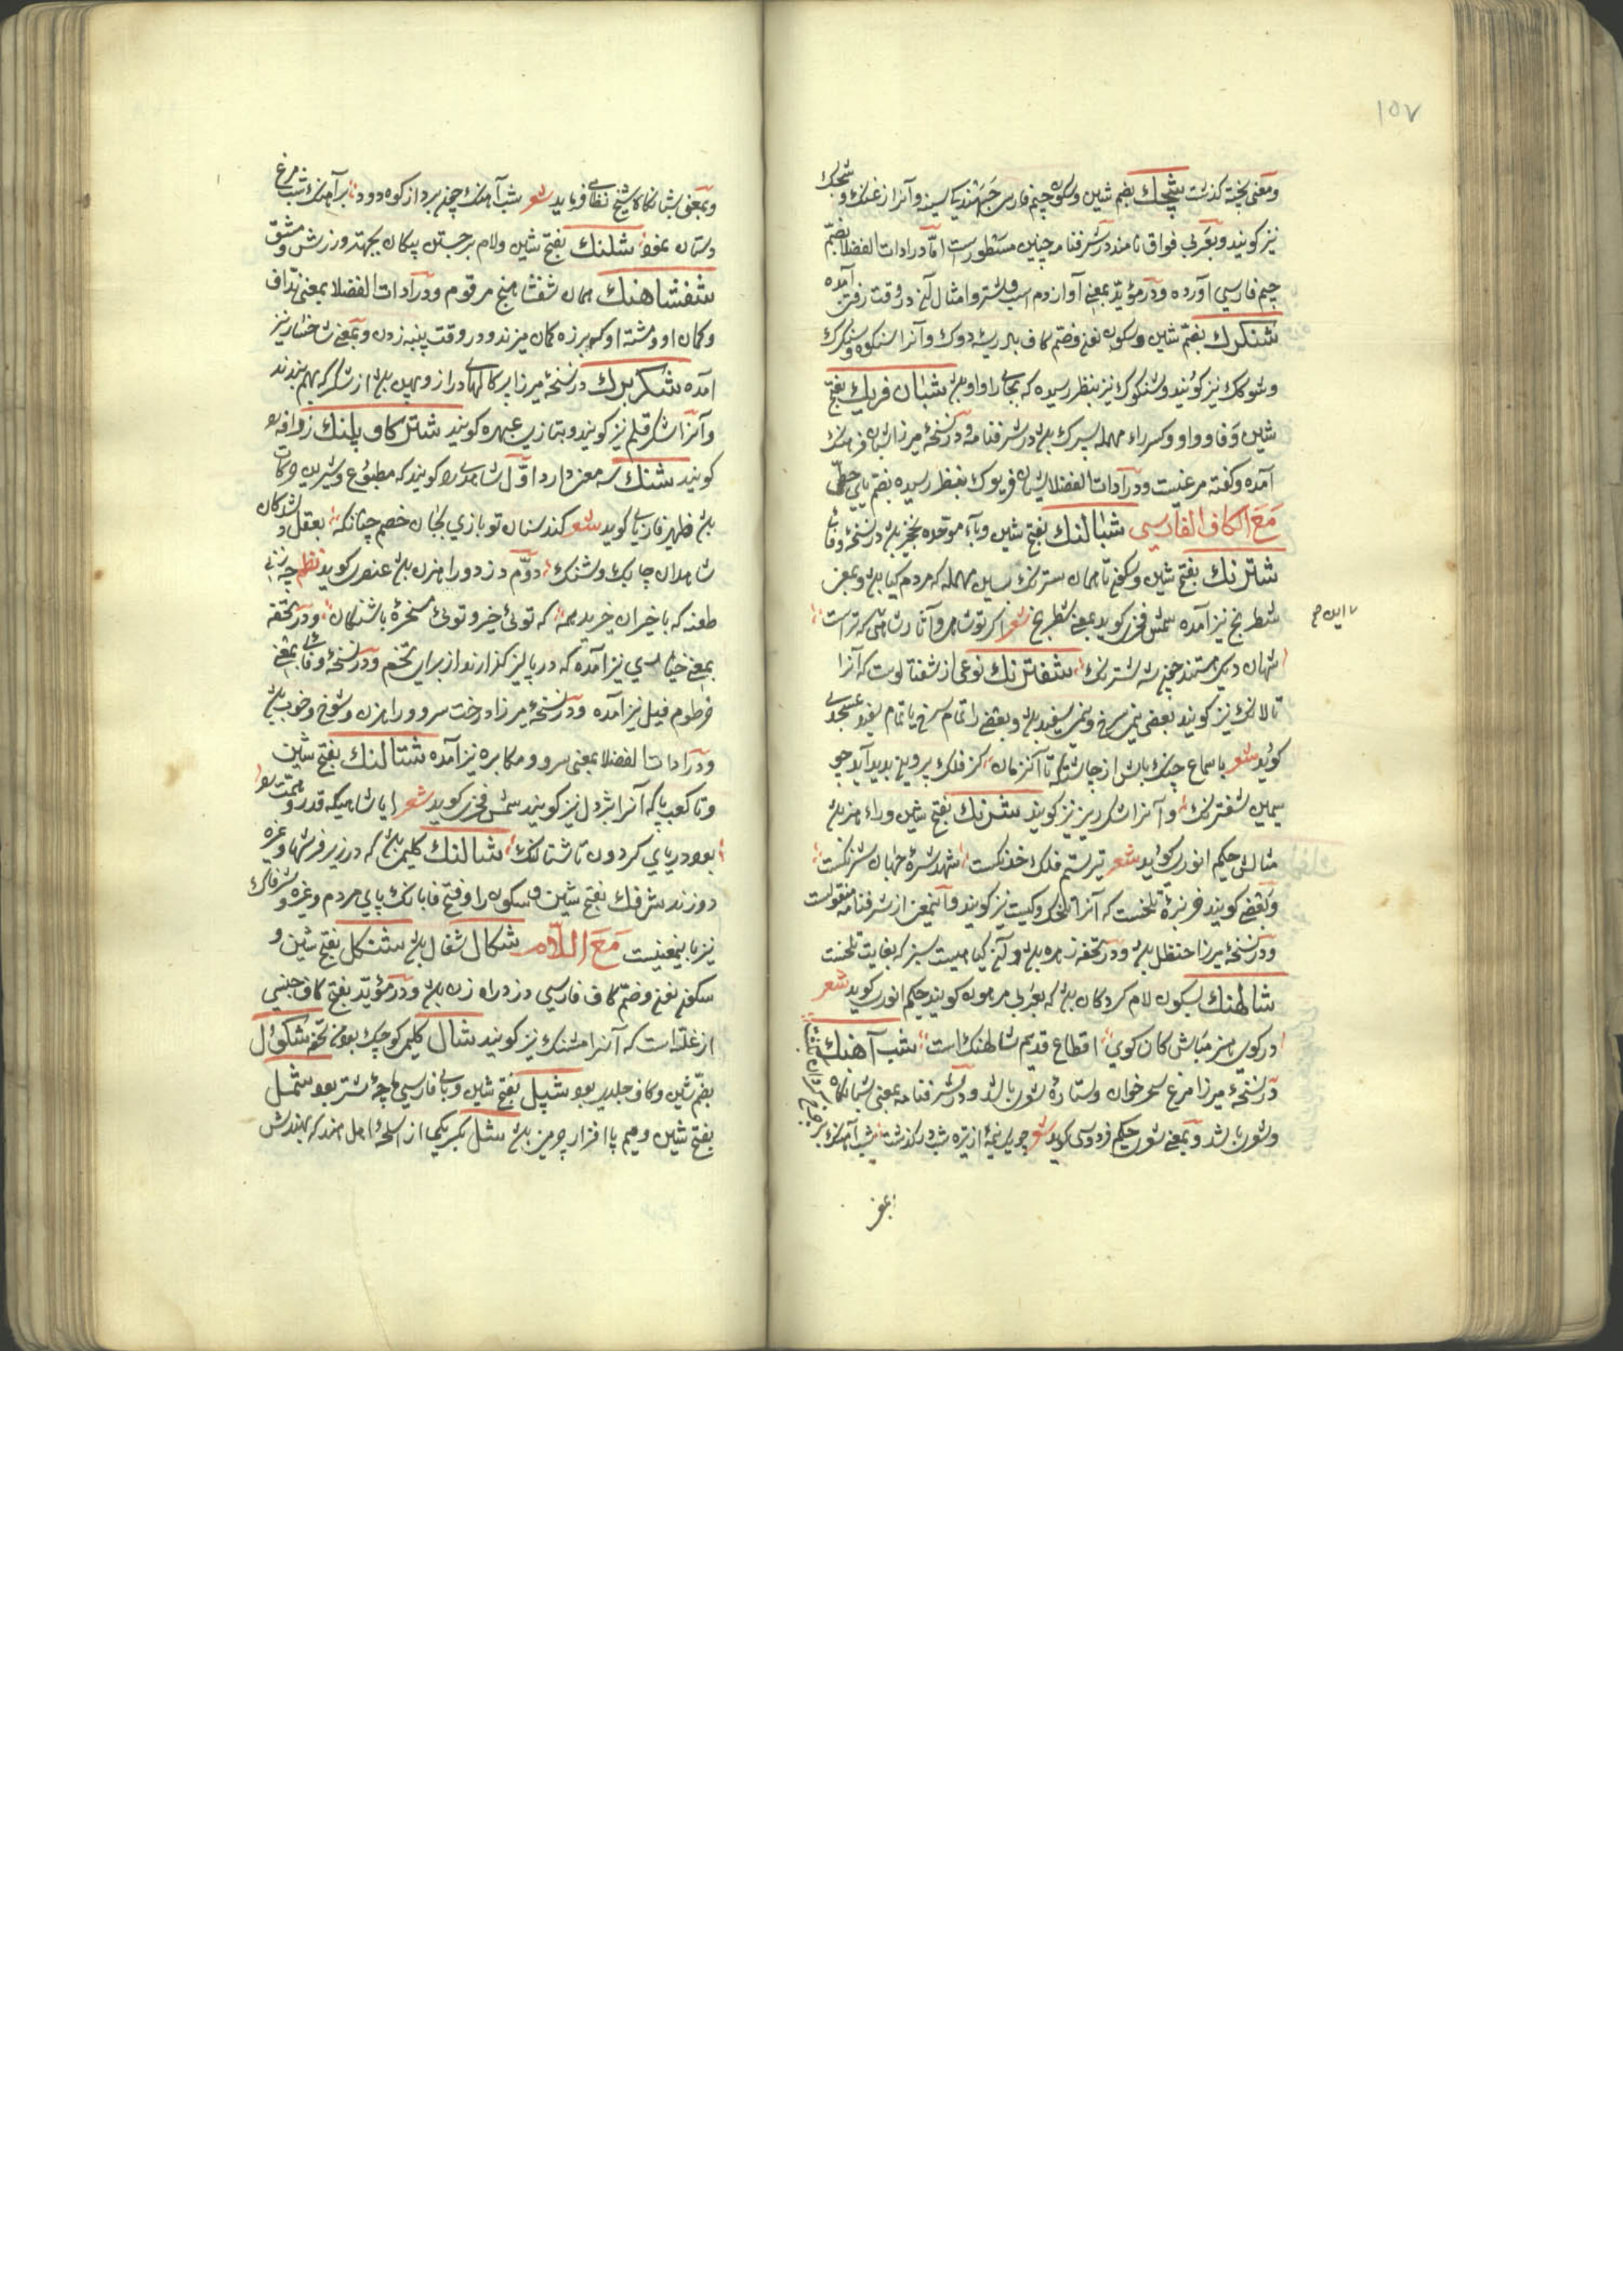 ١٥٧
ومعنی پخته گذشت شچک بضم شین وسکون جیم فارسی و آنرا زغنک و شجک
نیز گویند و بعربی فواق نامند در شرفنامه چنین مسطورست اما در ادات الفضلا بضم
جیم فارسی آورده و در مؤید بمعنی آواز دم اسب و شتر و امثال آن در وقت رفتن آمده
شنکرک بضم شین و سکون نون و ضم کاف بادریسه دوک و آنرا شنکوه و شنکرک
و شوکک نیز گویند و شنکوک نیز بنظر رسیده که بجای را واو باشد شبان فریک بفتح
شین و فا و واو و کسر راء مهمله شبپرک باشد در شرفنامه و در نسخهٔ میرزا شبان فرهنک
آمده و گفته مرغیست و در ادات الفضلا شبان فریوک بنظر رسیده بضم یای حطی
مع الکاف الفارسی شبالنک بفتح شین وباء موحده نخچیر باشد در نسخهٔ وفایی
شترنک بفتح شین و سکون تا همان سترنک بسین مهمله که مردم گیا باشد و بمعنی
شطرنج نیز آمده شمس فخری گوید بمعنی شطرنج شعر اگر تو شاهی و آنان شاهی که تراست
شهان دیگر هستند چون شه شترنک شفترنک نوعی از شفتالوست که آنرا
تالانک نیز گویند بعضی نیمی سرخ و نیمی سفید باشد و بعضی را تمام سرخ یا تمام سفید عسجدی
گوید شعر با سماع چنک باش از چاشتگه تا آنزمان کز فلک پروین پدید آید چو
سیمین شفترنک و آنرا شکر ریز نیز گویند شرنک بفتح شین و راء زهر باشد
مثالش حکیم انوری گوید شعر تیر ستم فلک خدنکست شهد شره جهان شرنکست
و بعضی گویند خربزهٔ تلخست که آنرا تلخک و کبست نیز گویند و اینمعنی از شرفنامه منقولست
و در نسخهٔ میرزا حنظل باشد و در تحفه زهره باشد و آن گیاهیست سبز که بغایت تلخست
شالهنک بسکون لام گردکان باشد که بعربی مرهون گویند حکیم انوری گوید شعر
در کوی هنر مباش کان کوی اقطاع قدیم شالهنک است شب آهنک
در نسخهٔ میرزا مرغ سحرخوان و ستارهٔ شعری باشد و در شرفنامه بمعنی شبانگاه
و شعری باشد و بمعنی شعری حکیم فردوسی گوید شعر چو یک نیمه از تیره شب در گذشت شب آهنک بر
چرخ گردان بگشت
بمعنی
وبمعنی شبانگاه شیخ نظامی فرماید شعر شب آهنک چون برد از کوه دود برآهنک شب مرغ
دستان نمود شلنک بفتح شین ولام برجستن پیکان بجهة ورزش و مشق
شفشاهنک همان شفشاهنج مرقوم و در ادات الفضلا بمعنی نداف
و کمان او و مشته او که بر زه کمان میزند در وقت پنبه زدن و بمعنی شاخسار نیز
آمده شکر برک در نسخهٔ میرزا پرکالهای دراز و پهن باشد از شکر که بهم بندند
و آنرا شکر قلم نیز گویند و بتازی عبهره گویند شتر گاو پلنک زرافه
گویند شنک سه معنی دارد اول شاهدی گویند که مطبوع و شیرین حرکات
باشد ظهیر فاریابی گوید شعر کند سنان تو بازی بجان خصم چنانکه بعقل دلشدگان
شاهدان چابک و شنک دوم دزد و راهزن باشد عنصری گوید نظم چه زنی
طعنه که با خیران خیرند همه که توئی خیر و توئی مسخرهٔ باشنکان و در تحفه
بمعنی خیاری نیز آمده که در پالیز گذارند از برای تخم و در نسخهٔ وفایی بمعنی
خرطوم فیل نیز آمده و در نسخهٔ میرزا درخت سرو و راهزن و شوخ و خوب باشد
و در ادات الفضلا بمعنی سرو و مکابره نیز آمده شتالنک بفتح شین
و تا کعب پا که آنرا بژول نیز گویند شمس فخری گوید شعر ایا شاهیکه قدر و همت
بود در پای گردون تا شتالنک شالنک گلیمی باشد که در زیر فرشها و غیره
دوزند شرفک بفتح شین و سکون را و فتح فا بانک پای مردم و غیره و شرفاک
نیز باینمعنیست مع اللام شکال شغال باشد شنکل بفتح شین و
سکون نون و ضم کاف فارسی دزد و راه زن باشد و در مؤید بفتح کاف جنسی
از غله است که آنرا مشنک نیز گویند شال گلیم کوچک بود تحفه شکول
بضم شین و کاف جلدی بود شپل بفتح شین و بای فارسی پاچهٔ شتر بود شمل
بفتح شین و میم پا افزار چرمین باشد شل بکسر یکی از اسلحهٔ اهل هند که بهندیش